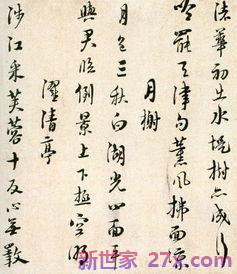 渚華初出水堤樹亦成行
吟罷天津句薰風拂面涼
月榭
月色三秋白湖光四面平
與君凌倒景上下極空明
濯清亭
涉江采芙蓉十反心無斁
新世家